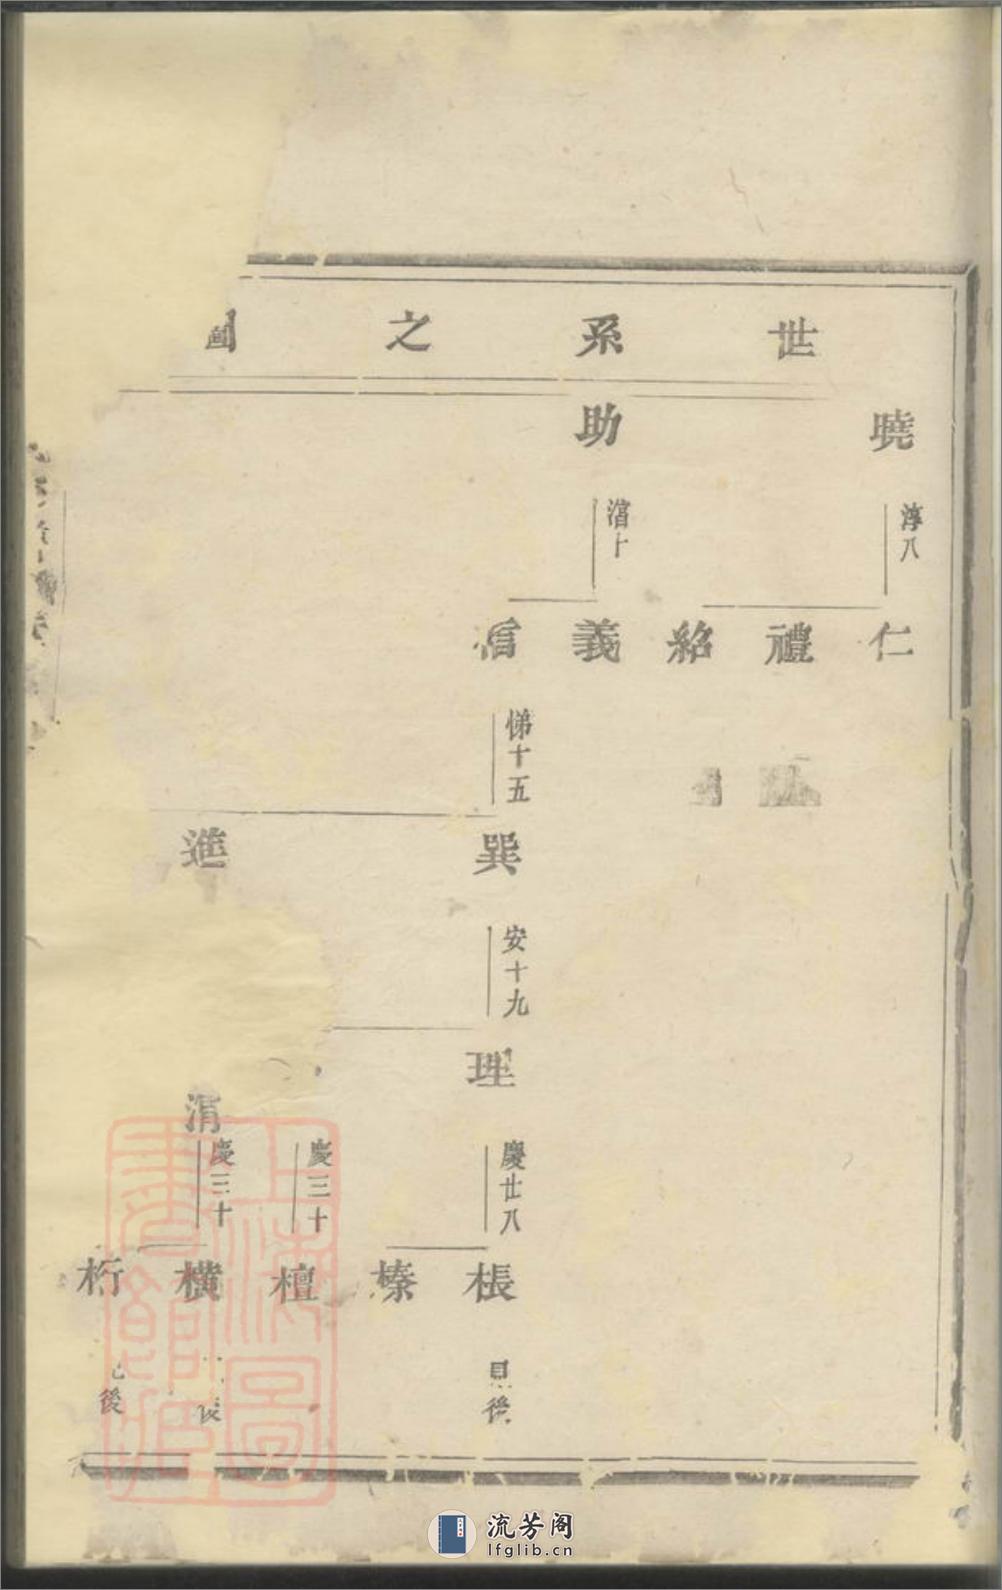 世系之圖
曉 助
淳八
仁禮紹義信
悌十五
巽 進
安十九
理 渭
慶廿八
慶三十
慶三十
棖榛檀橫桁
見後
後
後
流芳阁
lfglib.cn